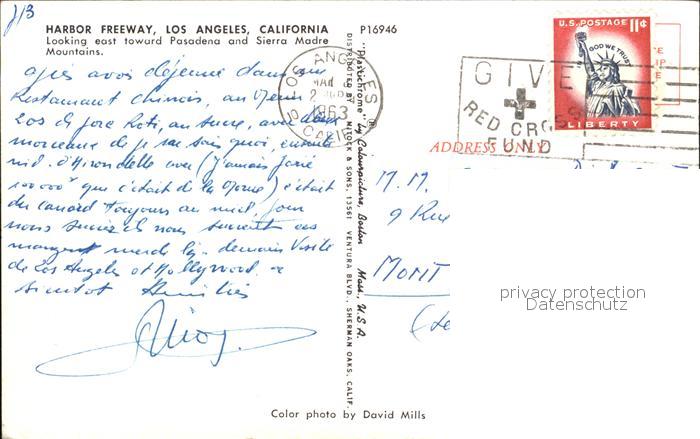 J/B
HARBOR FREEWAY, LOS ANGELES, CALIFORNIA
Looking east toward Pasadena and Sierra Madre
Mountains.
P16946
après avoir déjeuné dans un
Restaurant chinois, au menu
Zos de porc Roti, au sucre, avec deux
morceaux de je ne sais quoi, ensuite
nid d'Hirondelle avec (j'aurais parié
100000 que c'était de la morue) c'était
du canard Toujours au miel, pour
nous
mangent demain Visite
de Los Angeles et Hollywood. a
bientot Amitiés
DISTRIBUTED BY MITOCK & SONS, 13561 VENTURA BLVD., SHERMAN OAKS, CALIF.
"Plastichrome"® by Colourpicture, Boston Mass., U.S.A.
Color photo by David Mills
LOS ANGELES
MAR
2
1963
CALIF
GIVE
RED CROSS
FUND
U.S. POSTAGE 11¢
IN GOD WE TRUST
LIBERTY
ADDRESS ONLY
M. M.
9 Rue
MONT
privacy protection
Datenschutz